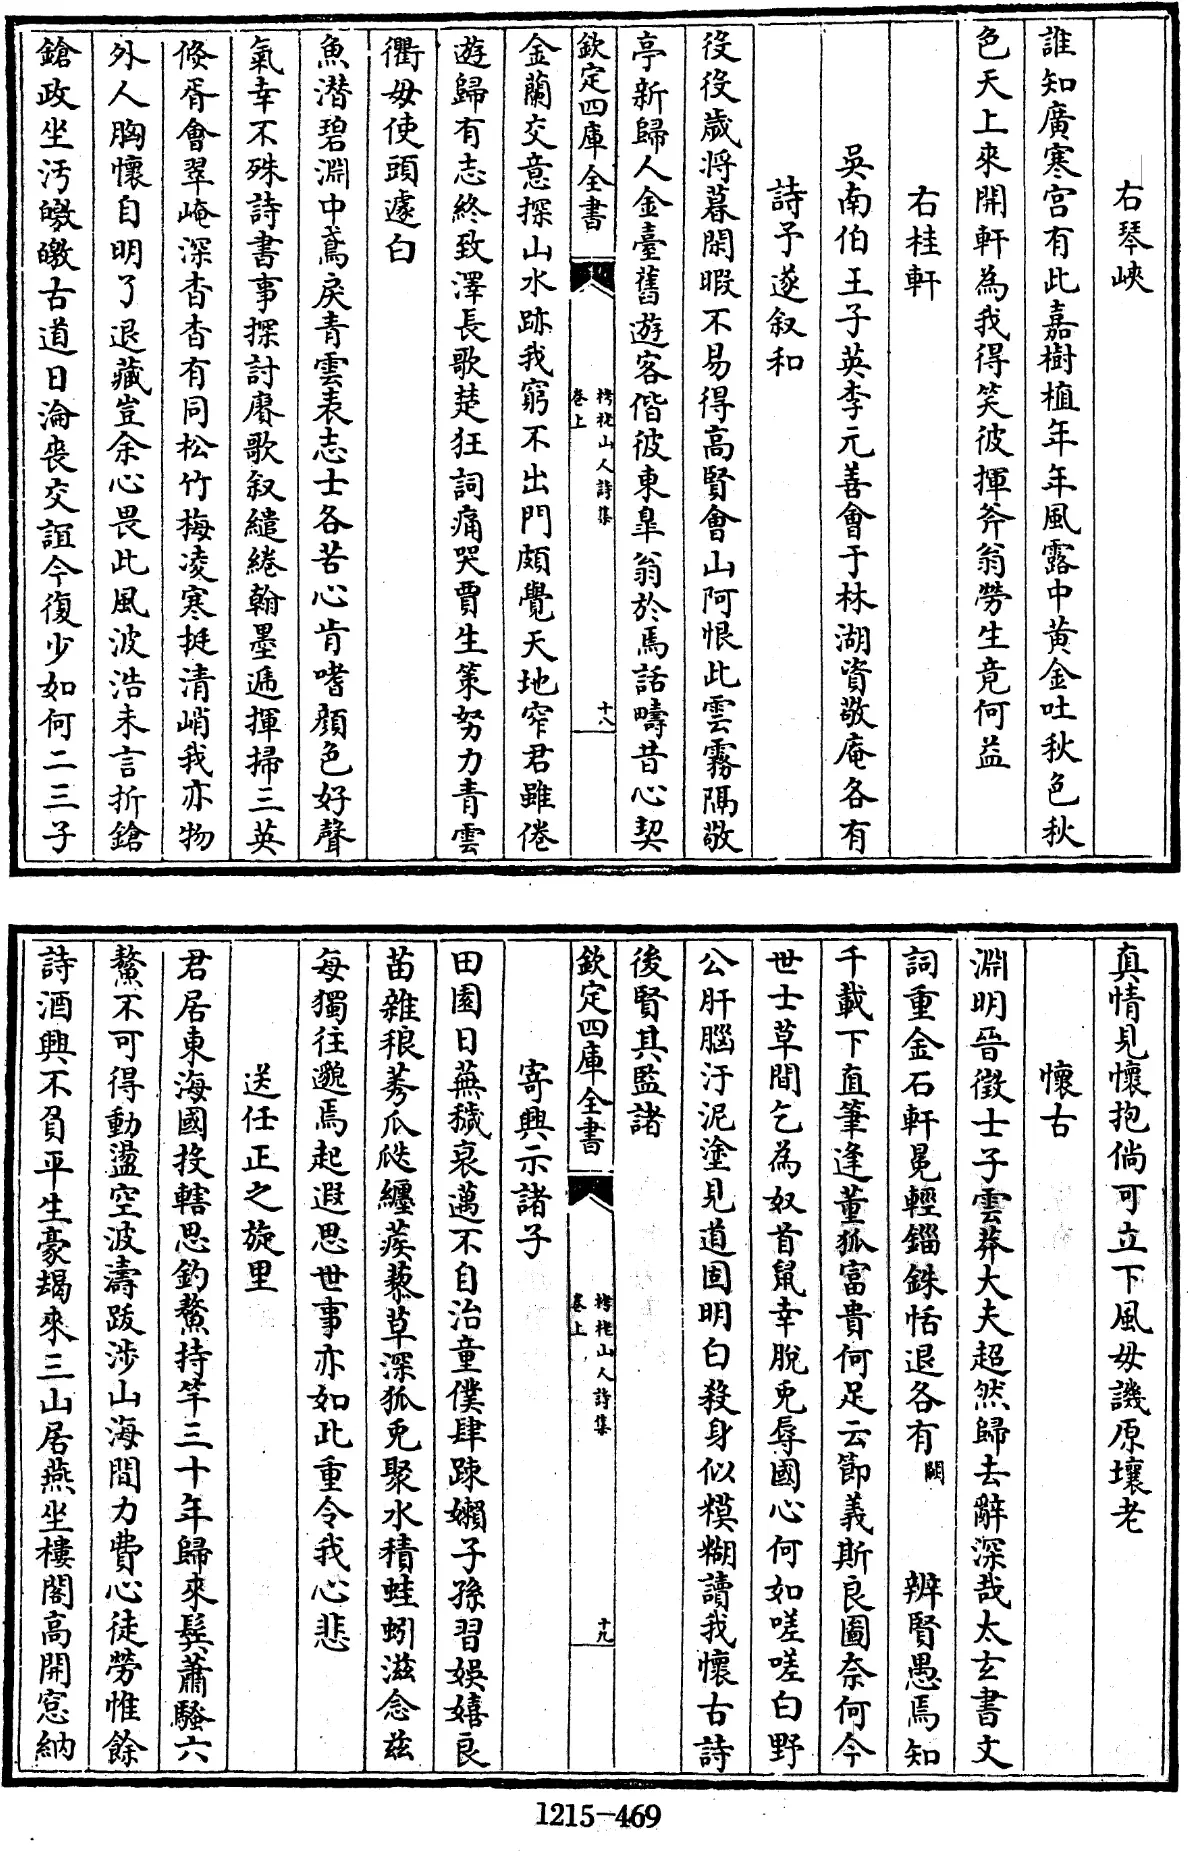 右琴峽
誰知廣寒宫有此嘉樹植年年風露中黄金吐秋色秋
色天上來開軒為我得笑彼揮斧翁勞生竟何益
右桂軒
吳南伯王子英李元善會于林湖資敬庵各有
詩予遂叙和
役役歲將暮閑暇不易得高賢會山阿恨此雲霧隔敬
亭新歸人金臺舊遊客偕彼東臯翁於焉話疇昔心契
欽定四庫全書
栲栳山人詩集
卷上
十八
金蘭交意探山水跡我窮不出門頗覺天地窄君雖倦
遊歸有志終致澤長歌楚狂詞痛哭賈生策努力青雲
衢毋使頭遽白
魚潛碧淵中鳶戾青雲表志士各苦心肯嗜顔色好聲
氣幸不殊詩書事探討賡歌叙繾綣翰墨逓揮掃三英
倐胥會翠崦深杳杳有同松竹梅凌寒挺清峭我亦物
外人胸懷自明了退藏豈余心畏此風波浩未言折鎗
鎗政坐汚皦皦古道日淪喪交誼今復少如何二三子
真情見懷抱倘可立下風毋譏原壤老
懷古
淵明晉徴士子雲莽大夫超然歸去辭深哉太玄書文
詞重金石軒冕輕錙銖恬退各有闕 辨賢愚焉知
千載下直筆逢董狐富貴何足云節義斯良圖奈何今
世士草間乞為奴首䑕幸脱免辱國心何如嗟嗟白野
公肝腦汙泥塗見道固明白殺身似糢糊讀我懷古詩
後賢其監諸
欽定四庫全書
栲栳山人詩集
卷上
十九
寄興示諸子
田園日蕪穢衰邁不自治童僕肆踈嬾子孫習娛嬉良
苗雜稂莠瓜瓞纏蒺藜草深狐兎聚水積蛙蚓滋念兹
每獨往邈焉起遐思世事亦如此重令我心悲
送任正之旋里
君居東海國投轄思釣鰲持竿三十年歸來鬂蕭騷六
鰲不可得動盪空波濤跋涉山海間力費心徒勞惟餘
詩酒興不負平生豪朅來三山居燕坐樓閣高開窓納
1215-469